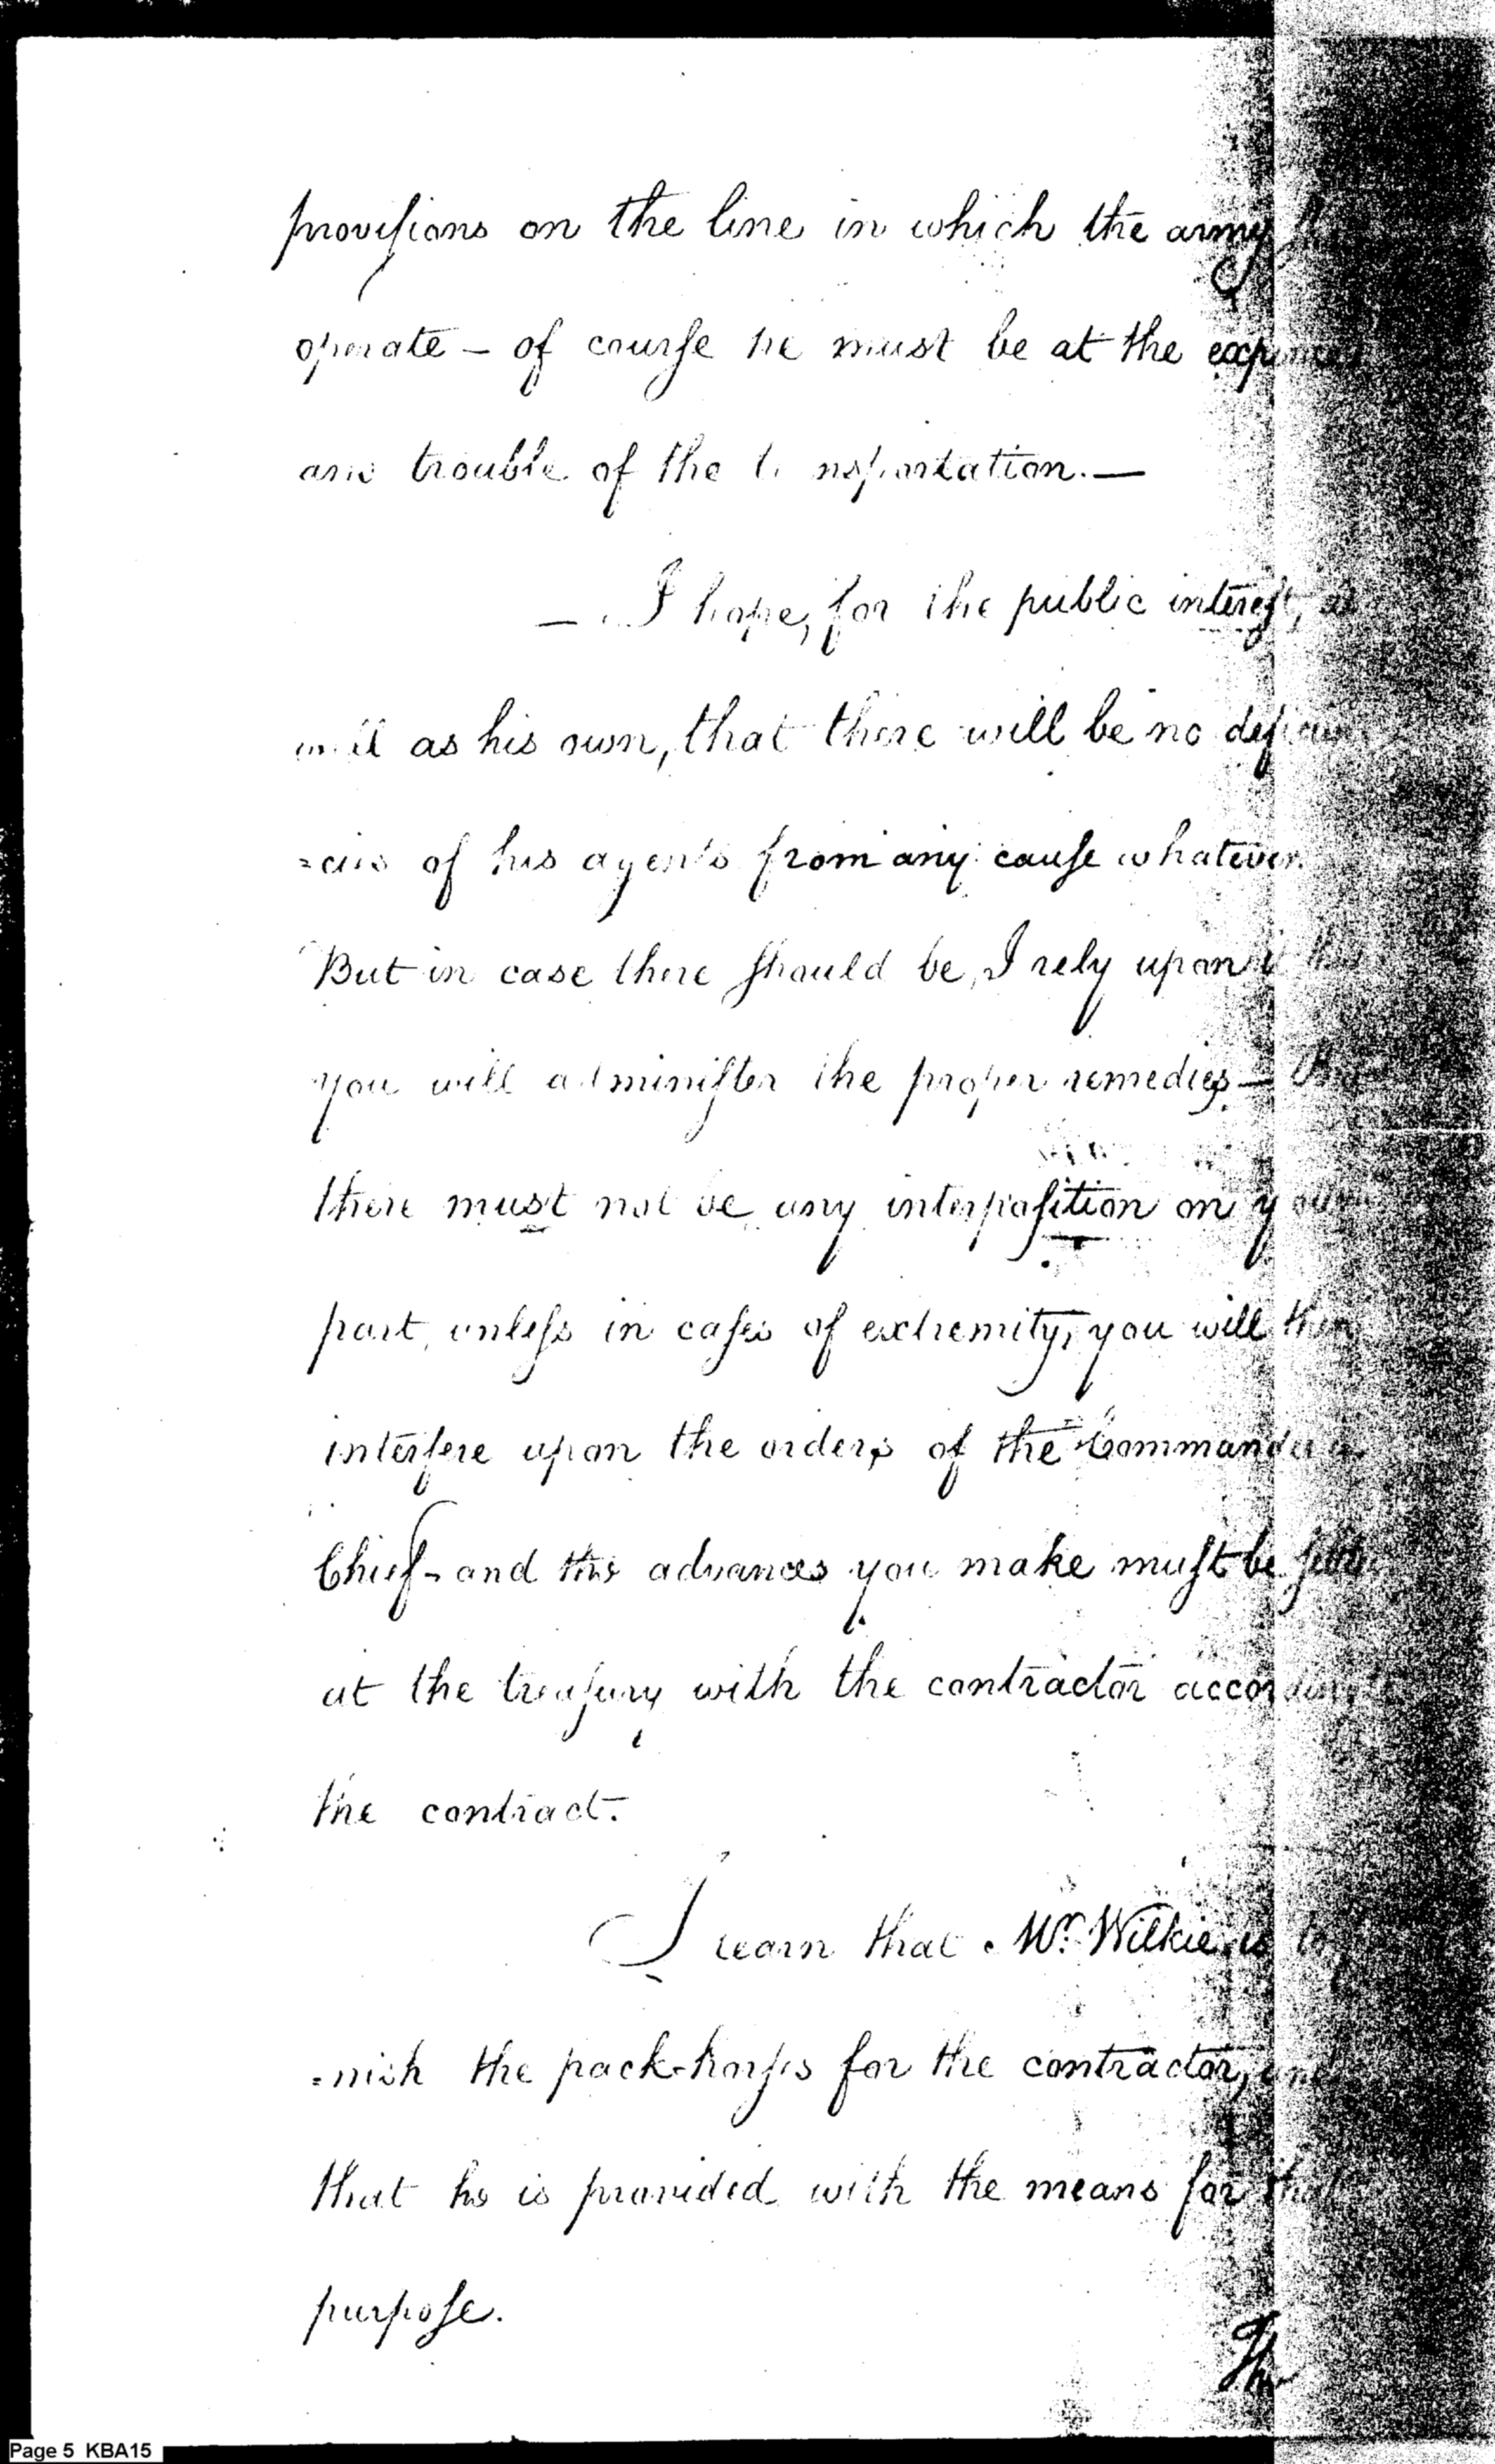 provisions on the line in which the army
operate – of course he must be at the
and trouble of the transportation. —
— I hope, for the public interest, as
well as his own, that there will be no
=cies of his agents from any cause whatever.
But in case there should be, I rely upon
you will administer the proper remedies —
there must not be any interposition on your
part, unless in cases of extremity, you will then
interfere upon the orders of the Commander in
Chief – and the advances you make must be
at the treasury with the contractor
the contract.
I learn that Mr. Wilkie is to
=nish the pack-horses for the contractor, and
that he is provided with the means for that
purpose.
The
Page 5 KBA15